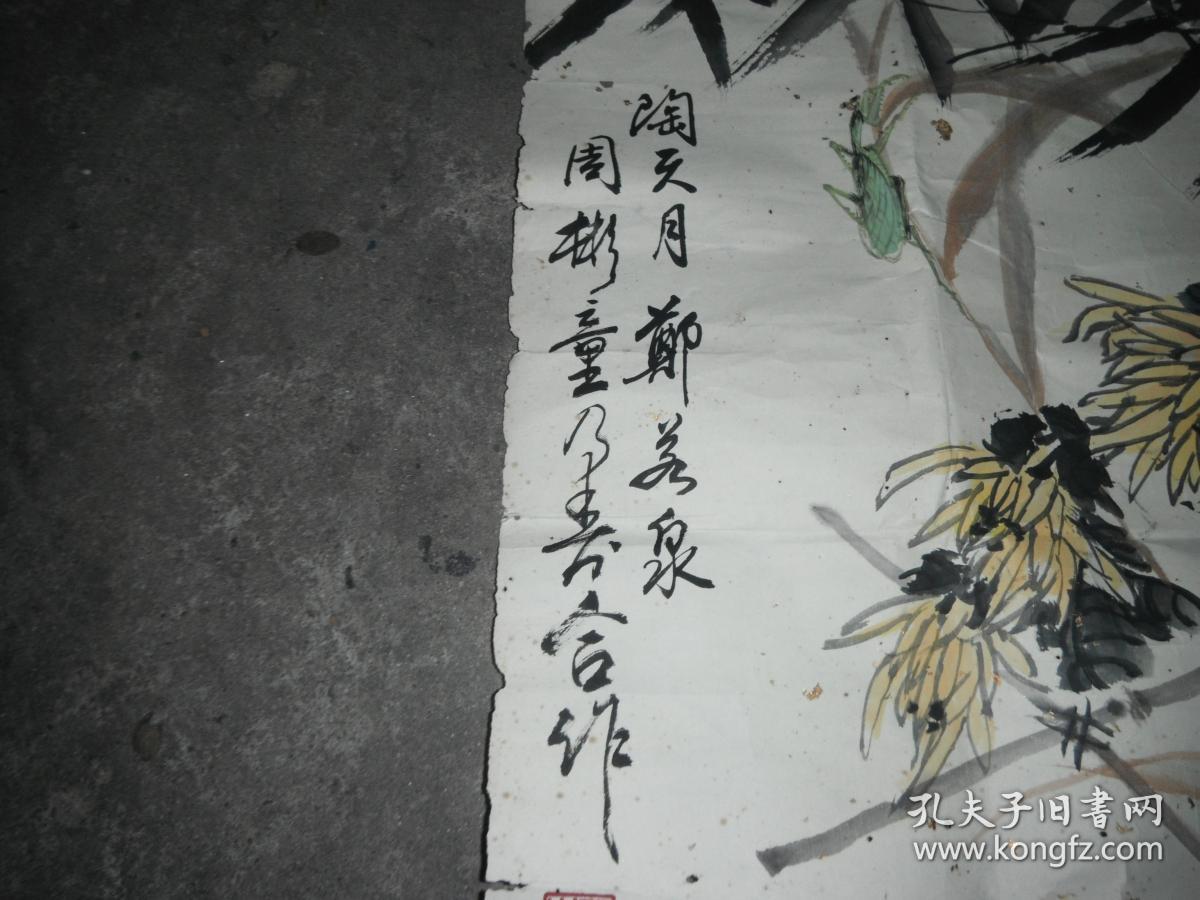 陶天月 鄭若泉
周彬童乃寿合作
孔夫子旧書网
www.kongfz.com